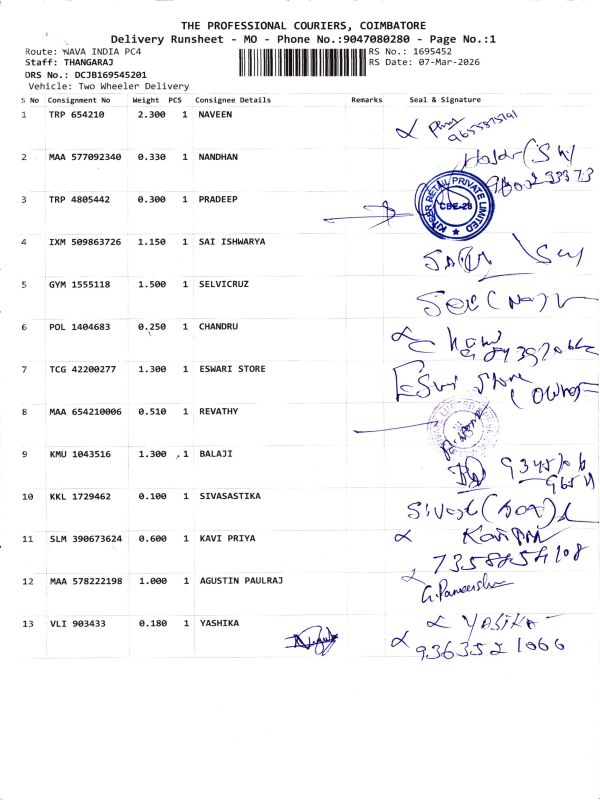 THE PROFESSIONAL COURIERS, COIMBATORE
Delivery Runsheet - MO - Phone No.:9047080280 - Page No.:1
Route: NAVA INDIA PC4
RS No.: 1695452
Staff: THANGARAJ
RS Date: 07-Mar-2026
DRS No.: DCJB169545201
Vehicle: Two Wheeler Delivery
S No Consignment No Weight PCS Consignee Details Remarks Seal & Signature
1 TRP 654210 2.300 1 NAVEEN
2 MAA 577092340 0.330 1 NANDHAN
3 TRP 4805442 0.300 1 PRADEEP
RETAIL PRIVATE LIMITED
CBE-28
4 IXM 509863726 1.150 1 SAI ISHWARYA
5 GYM 1555118 1.500 1 SELVICRUZ
6 POL 1404683 0.250 1 CHANDRU
7 TCG 42200277 1.300 1 ESWARI STORE
Eswi Store
(Owner
8 MAA 654210006 0.510 1 REVATHY
9 KMU 1043516 1.300 1 BALAJI
10 KKL 1729462 0.100 1 SIVASASTIKA
11 SLM 390673624 0.600 1 KAVI PRIYA
7358854108
12 MAA 578222198 1.000 1 AGUSTIN PAULRAJ
13 VLI 903433 0.180 1 YASHIKA
YASIKA
9363521066